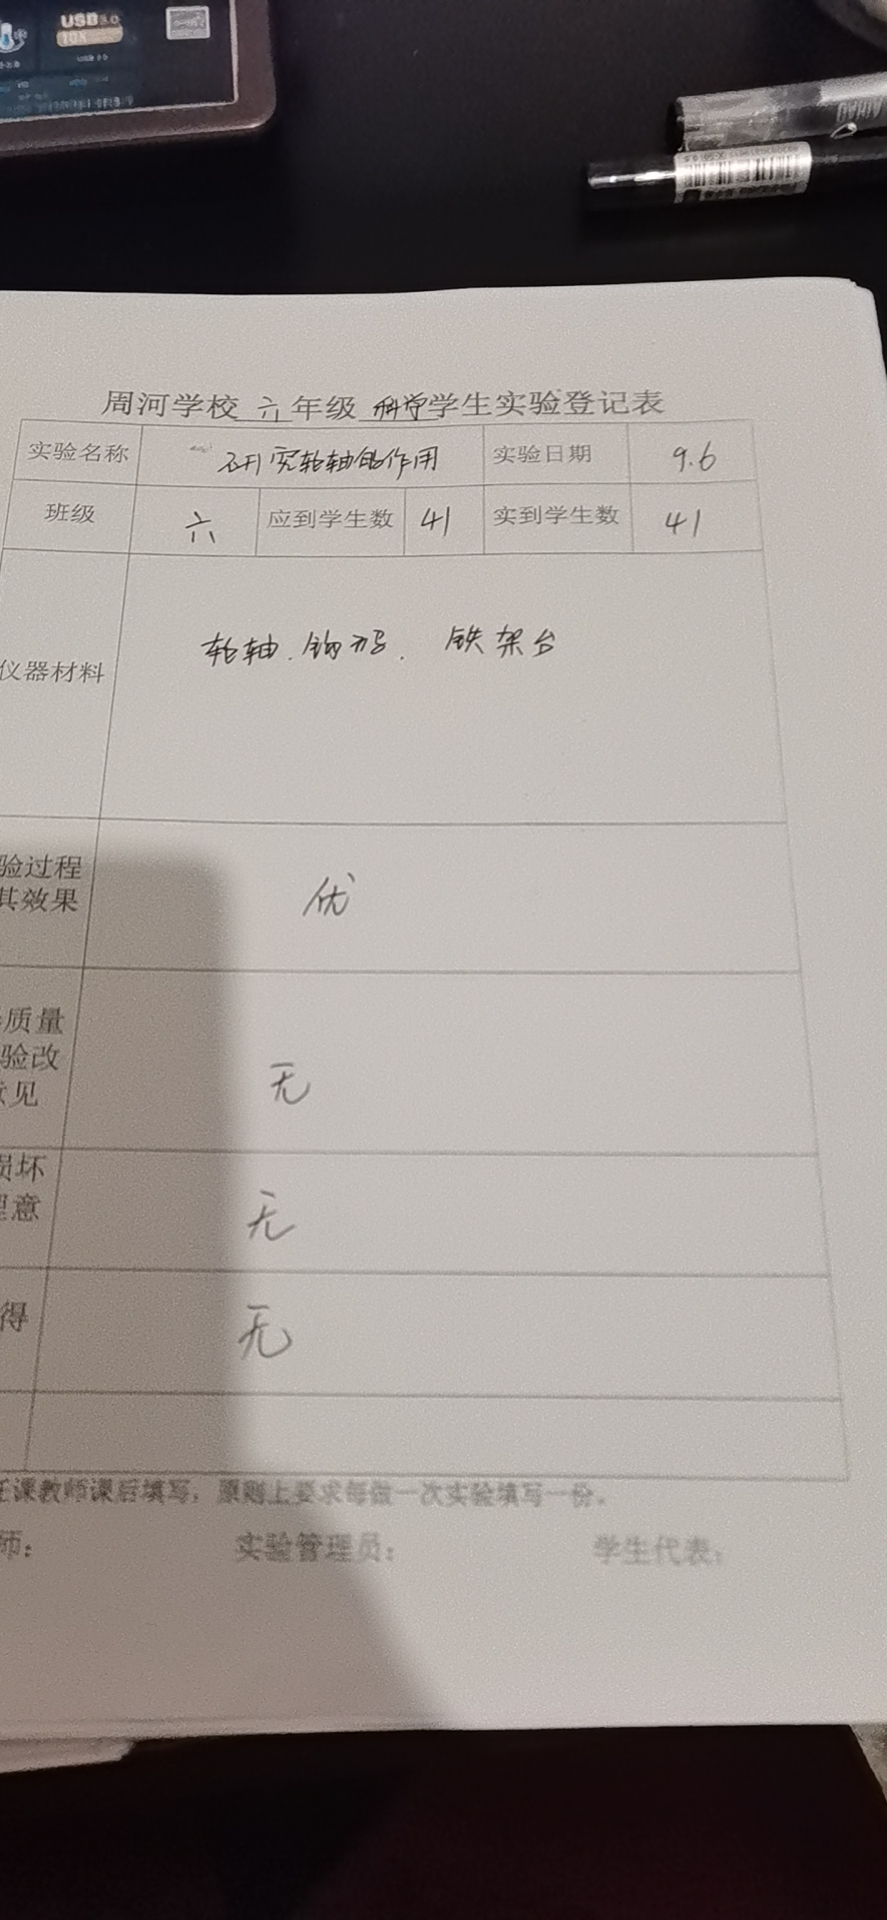 USB3.0
10X
AIHAO
周河学校 六 年级 科学 学生实验登记表
实验名称 研究轮轴的作用 实验日期 9.6
班级 六 应到学生数 41 实到学生数 41
仪器材料 轮轴、钩码、铁架台
验过程
其效果 优
质量
验改
意见 无
损坏
理意 无
得 无
任课教师课后填写，原则上要求每做一次实验填写一份。
师： 实验管理员： 学生代表：